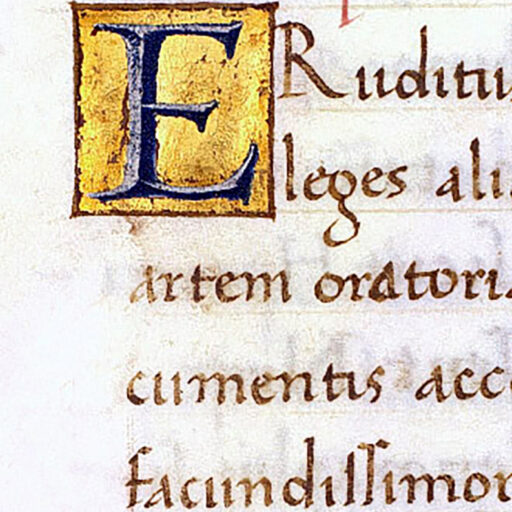 ERuditu
leges ali
artem oratori
cumentis acc
facundissimor